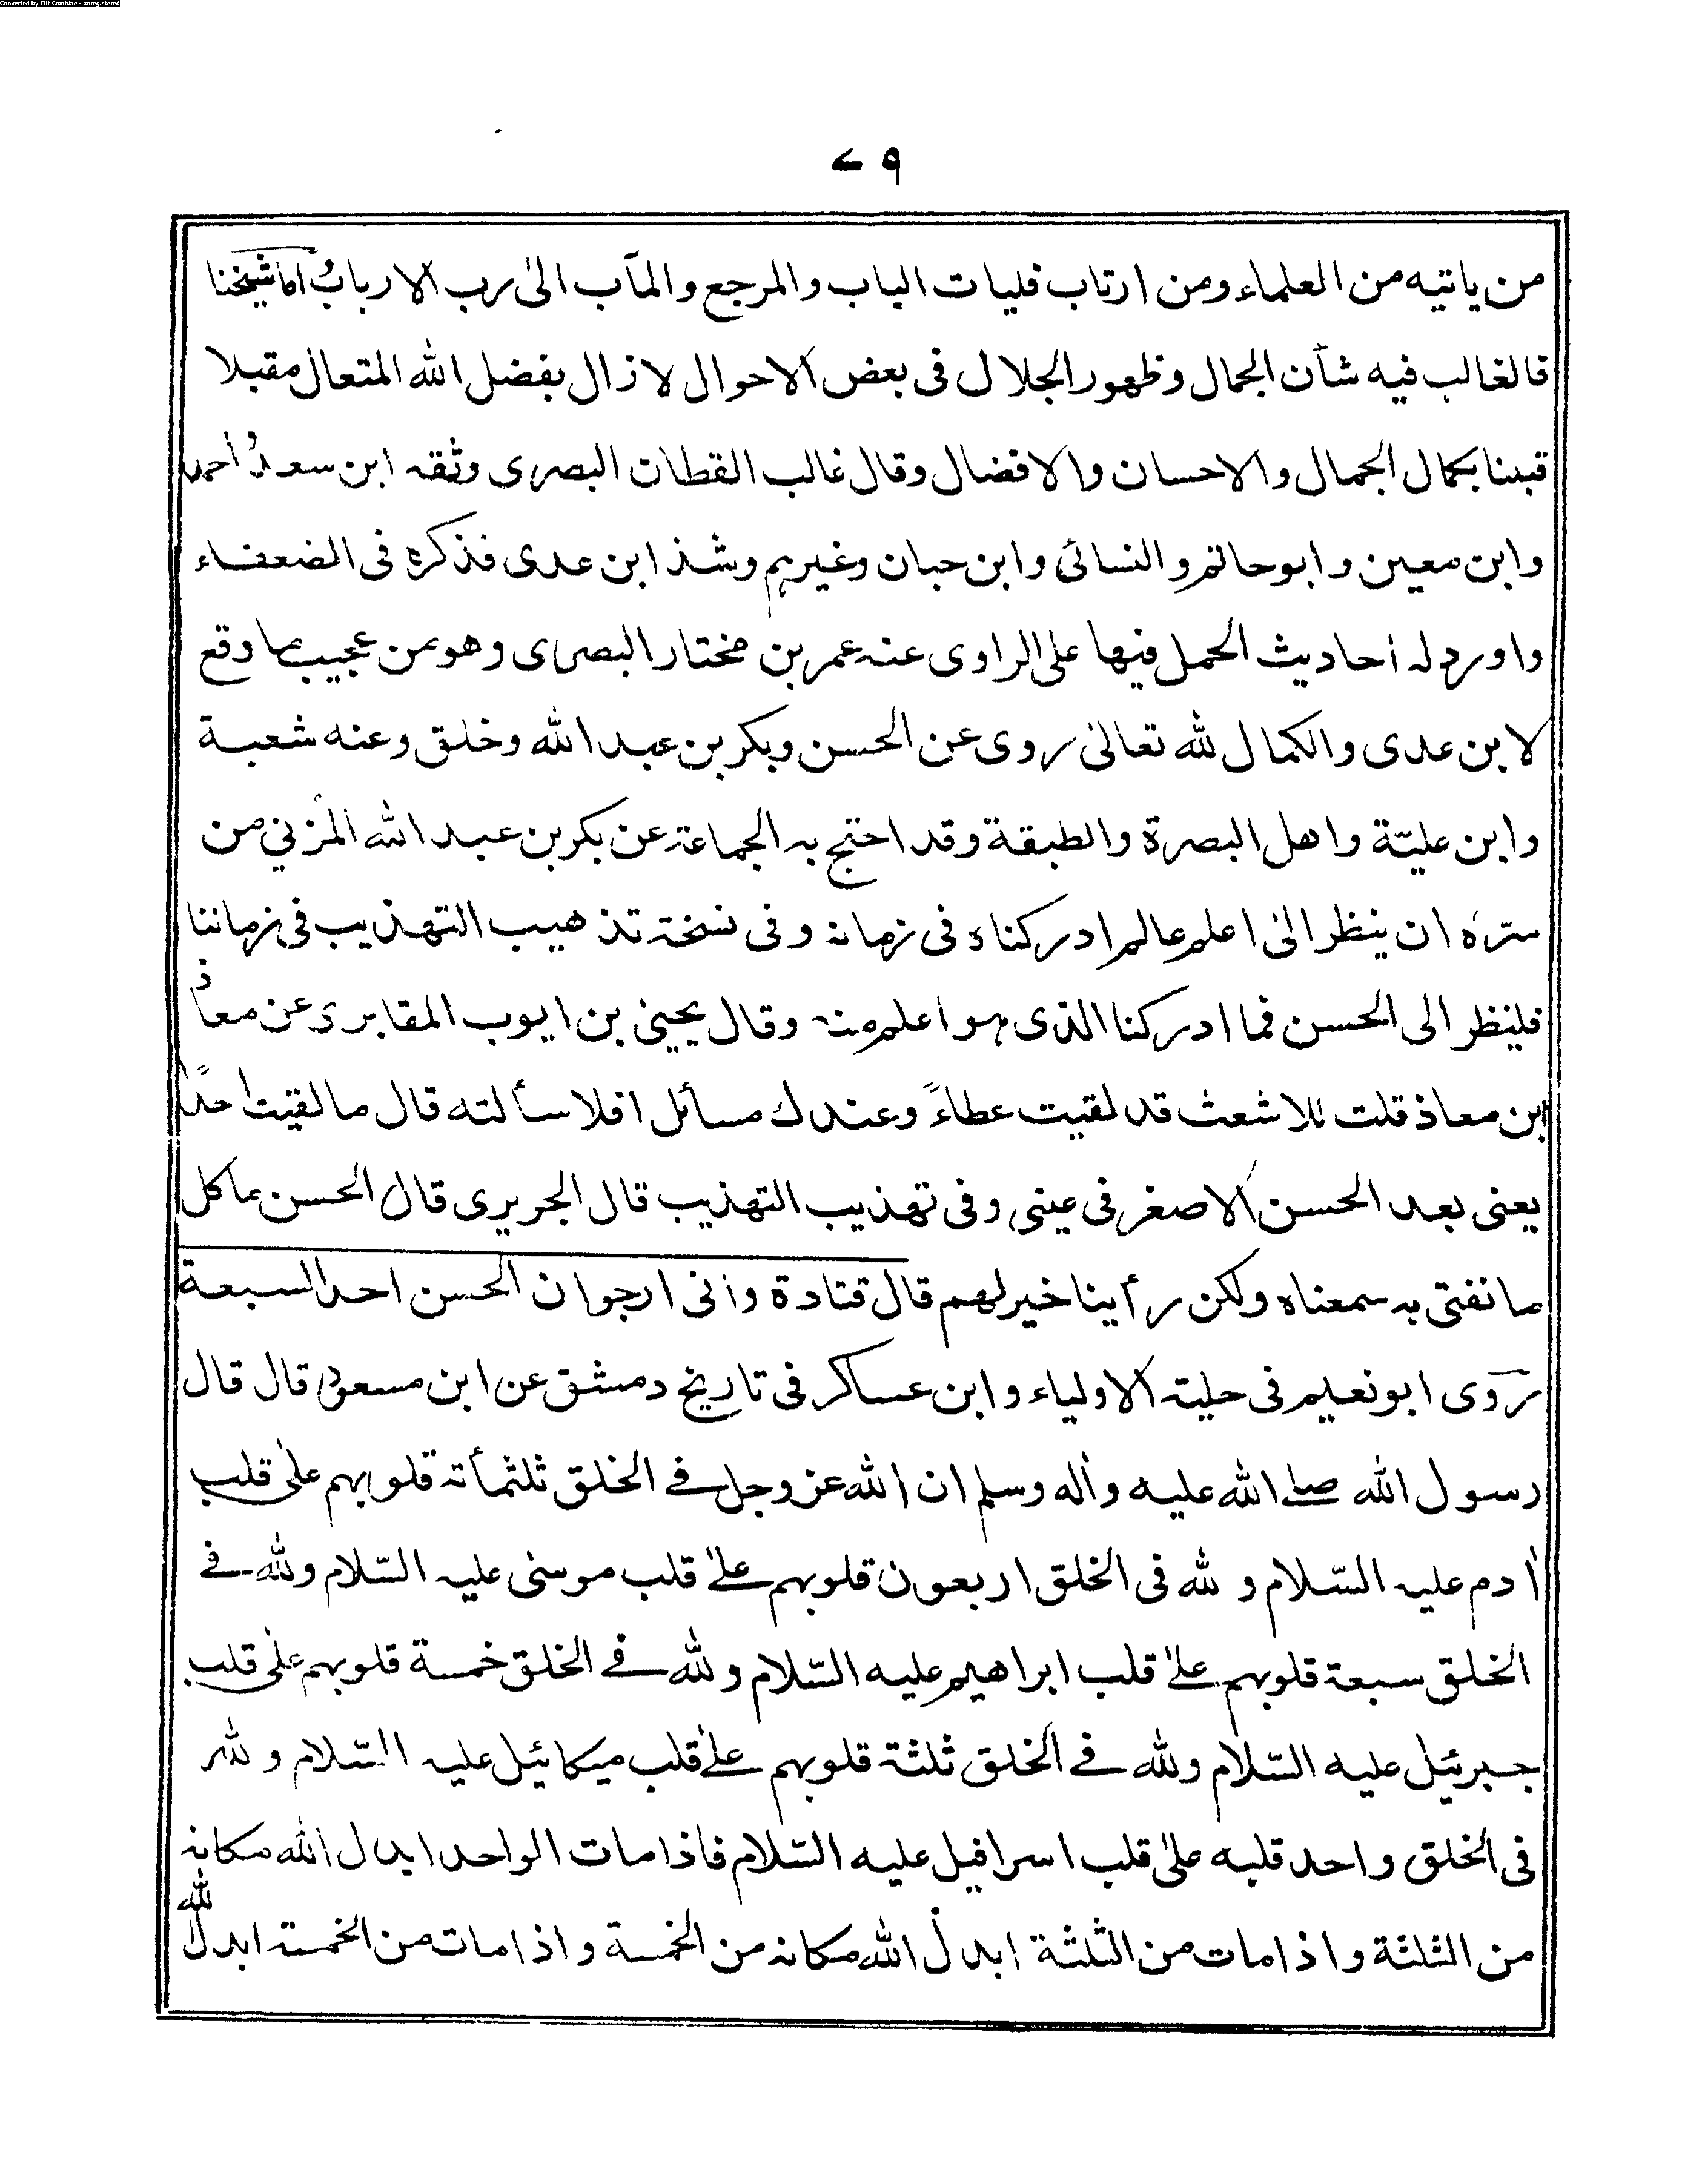 Converted by Tiff Combine - unregistered
٧٩
من ياتيه من العلماء ومن ارتاب فليات الباب والمرجع والمآب الى رب الارباب واما شيخنا
فالغالب فيه شأن الجمال وظهور الجلال فى بعض الاحوال لا زال بفضل الله المتعال مقبلا
قبلنا بكمال الجمال والاحسان والافضال وقال غالب القطان البصرى وثقه ابن سعد و احمد
وابن معين وابو حاتم والنسائى وابن حبان وغيرهم وشذ ابن عدى فذكره فى الضعفاء
واورد له احاديث الحمل فيها على الراوى عنه عمر بن مختار البصرى وهو من عجيب ما وقع
لابن عدى والكمال لله تعالى روى عن الحسن وبكر بن عبد الله وخلق وعنه شعبة
وابن عليّة واهل البصرة والطبقة وقد احتج به الجماعة عن بكر بن عبد الله المزني من
سرّه ان ينظر الى اعلم عالم ادركناه فى زمانه وفى نسخة تذهيب التهذيب فى زماننا
فلينظر الى الحسن فما ادركنا الذى هو اعلم منه وقال يحيى بن ايوب المقابرى عن معاذ
ابن معاذ قلت للاشعث قد لقيت عطاءً وعندك مسائل افلا سألته قال ما لقيت احدًا
يعنى بعد الحسن الا صغر فى عينى وفى تهذيب التهذيب قال الجريرى قال الحسن ما كل
ما نفتى به سمعناه ولكن رأينا خير لهم قال قتادة وانى ارجوا ن الحسن احد السبعة
روى ابو نعيم فى حلية الاولياء وابن عساكر فى تاريخ دمشق عن ابن مسعود قال قال
رسول الله صلى الله عليه واٰله وسلم ان الله عز وجل فے الخلق ثلثمأته قلوبهم على قلب
اٰدم عليه السّلام ولله فى الخلق اربعون قلوبهم علےٰ قلب موسىٰ عليه السّلام ولله فے
الخلق سبعة قلوبهم علےٰ قلب ابراهيم عليه السّلام ولله فے الخلق خمسة قلوبهم علىٰ قلب
جبرئيل عليه السّلام ولله فے الخلق ثلثة قلوبهم علےٰ قلب ميكائيل عليه السّلام ولله
فى الخلق واحد قلبه علىٰ قلب اسرافيل عليه السّلام فاذا مات الواحد ابدل الله مكانه
من الثلثة واذا مات من الثلثة ابدل الله مكانه من الخمسة واذا مات من الخمسة ابدل الله